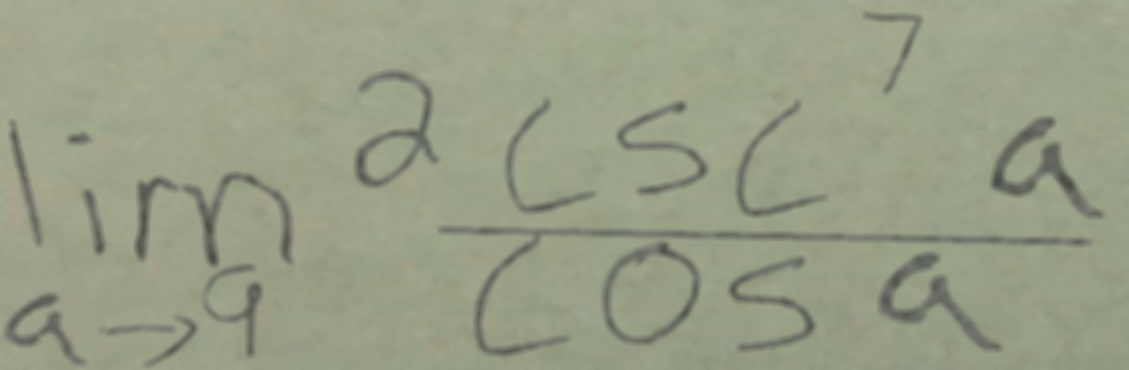 \lim_{a \to 9} 2 \frac{\csc^7 a}{\cos a}